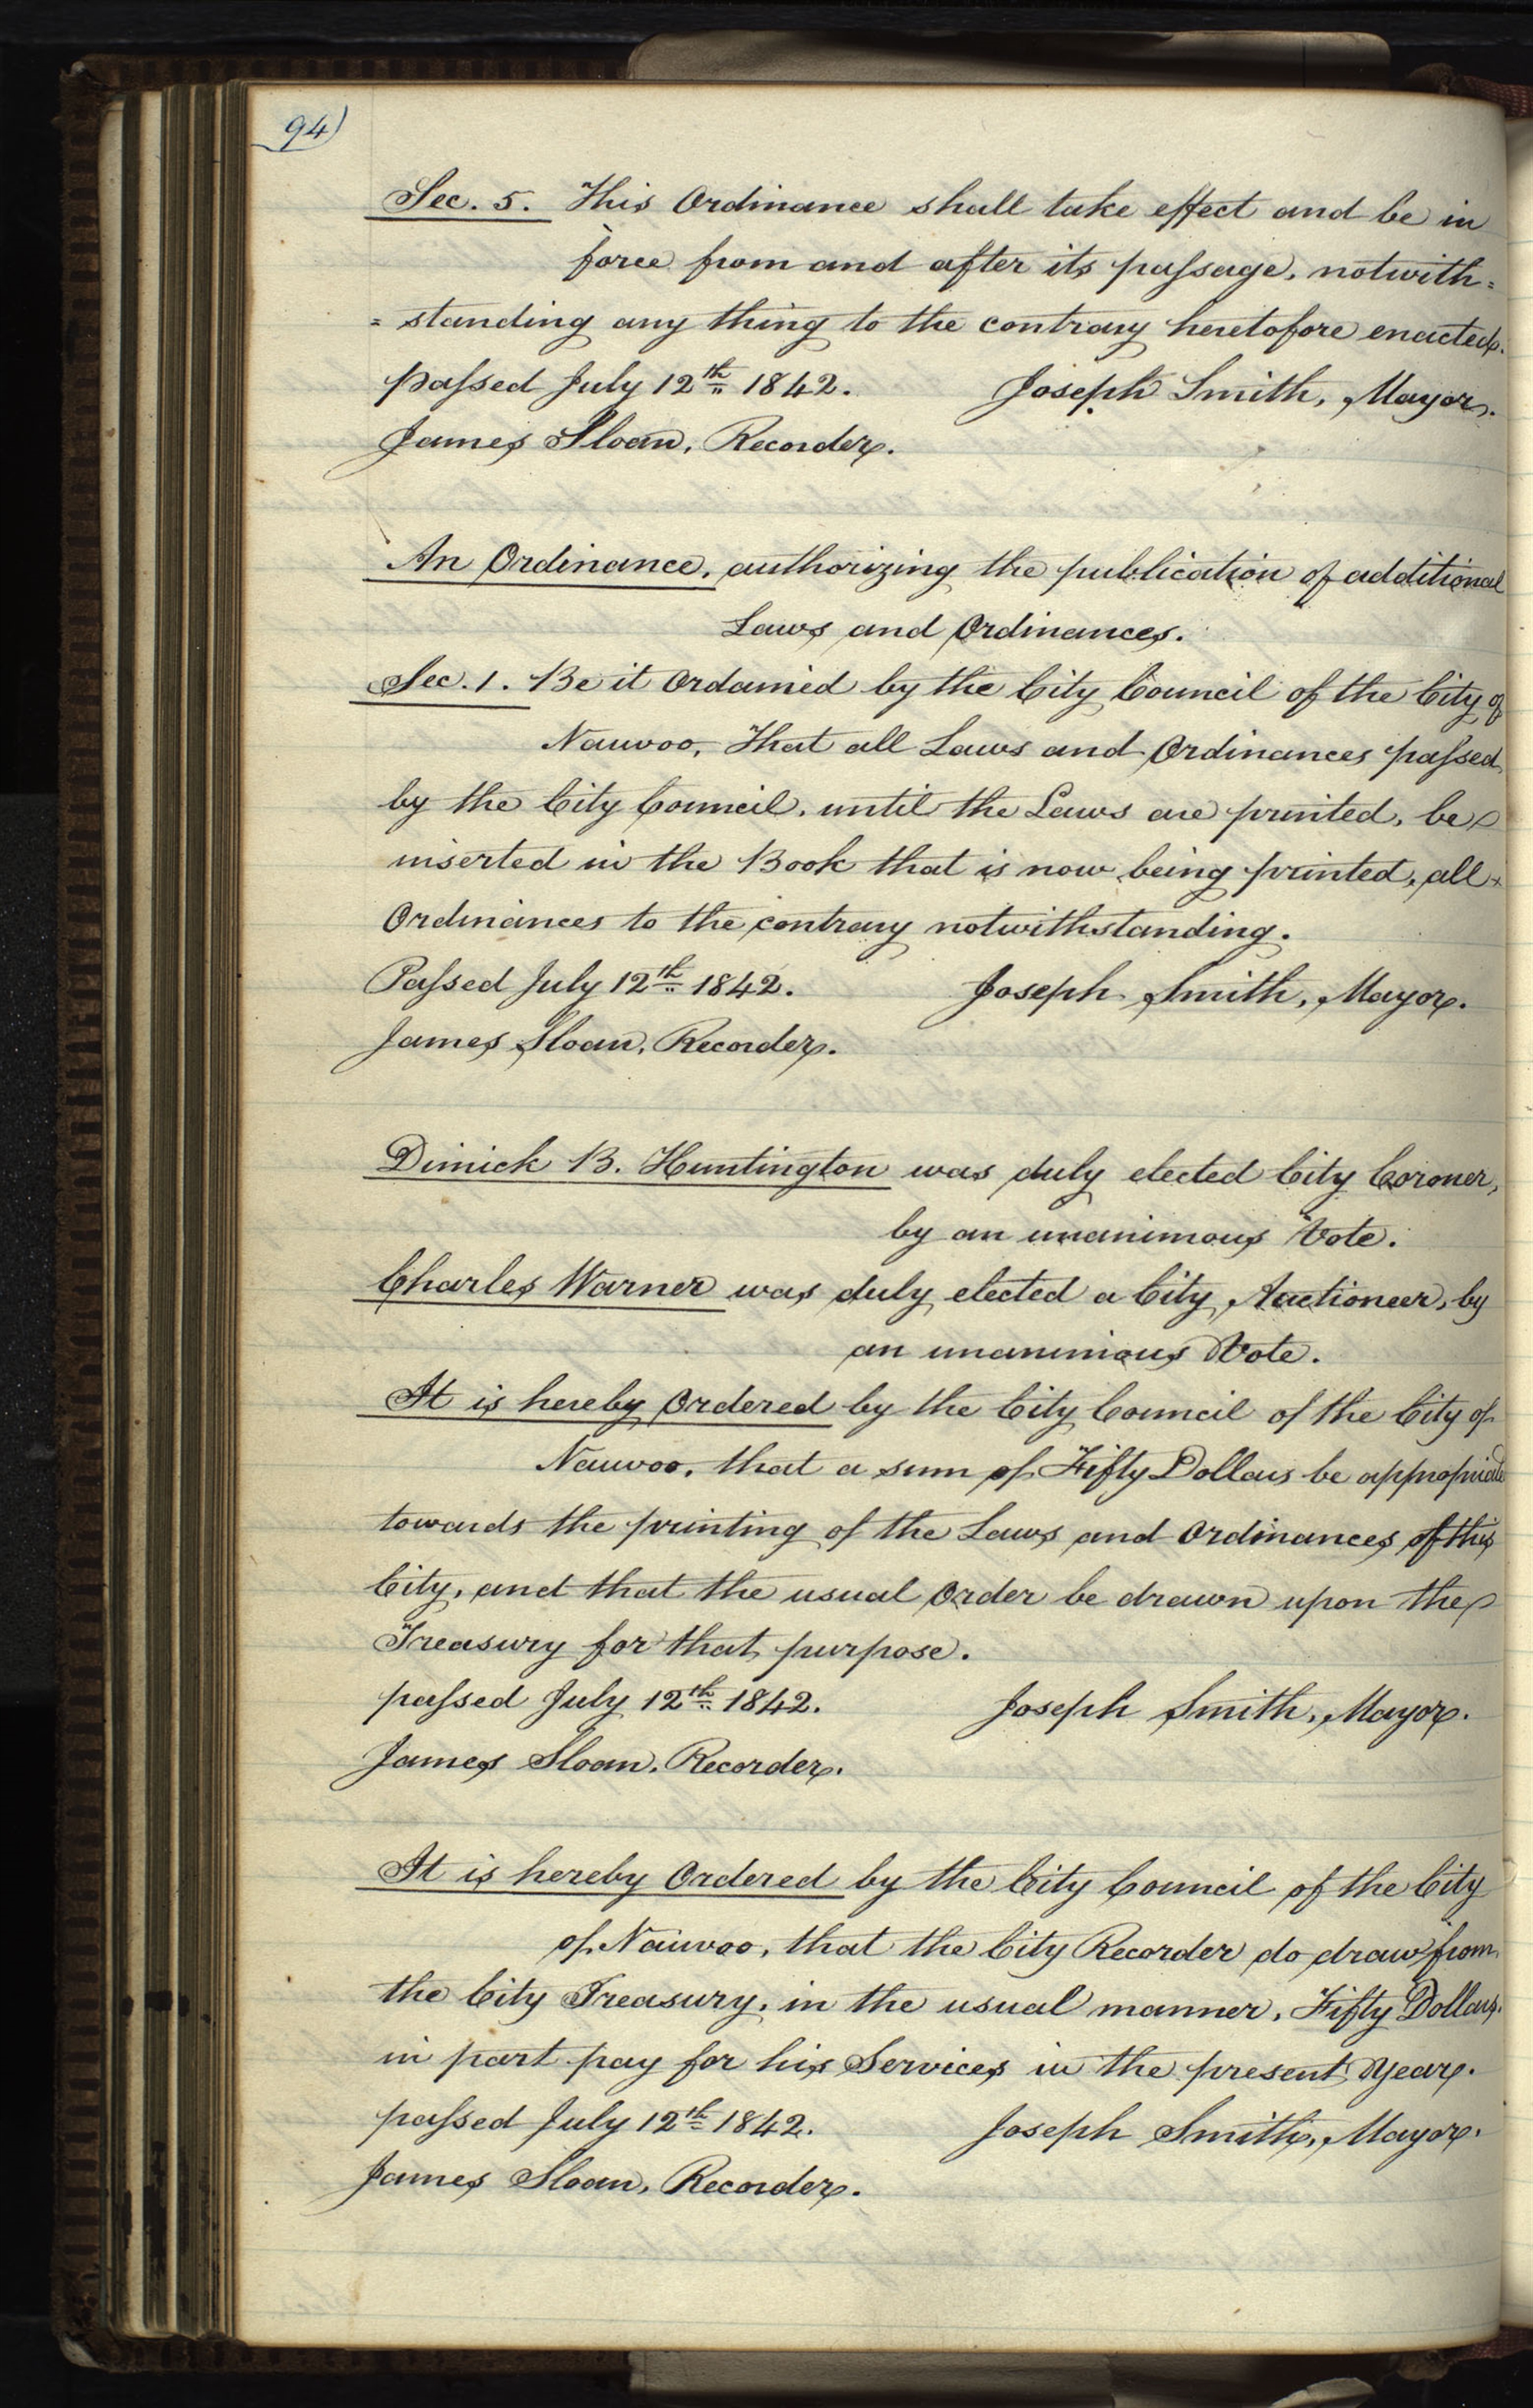 94)
Sec. 5. This Ordinance shall take effect and be in
force from and after its passage, notwith=
=standing any thing to the contrary heretofore enacted.
passed July 12th 1842. Joseph Smith, Mayor.
James Sloan, Recorder.
An Ordinance, authorizing the publication of additional
Laws and Ordinances.
Sec. 1. Be it Ordained by the City Council of the City of
Nauvoo, That all Laws and Ordinances passed
by the City Council, until the Laws are printed, be
inserted in the Book that is now being printed, all
Ordinances to the contrary notwithstanding.
Passed July 12th 1842. Joseph Smith, Mayor.
James Sloan, Recorder.
Dimick B. Huntington was duly elected City Coroner,
by an unanimous Vote.
Charles Warner was duly elected a City Auctioneer, by
an unanimous Vote.
It is hereby Ordered by the City Council of the City of
Nauvoo, that a sum of Fifty Dollars be appropriated
towards the printing of the Laws and Ordinances of this
City, and that the usual Order be drawn upon the
Treasury for that purpose.
passed July 12th 1842. Joseph Smith, Mayor.
James Sloan, Recorder.
It is hereby Ordered by the City Council of the City
of Nauvoo, that the City Recorder do draw from
the City Treasury, in the usual manner, Fifty Dollars.
in part pay for his Services in the present Year.
passed July 12th 1842. Joseph Smith, Mayor.
James Sloan, Recorder.